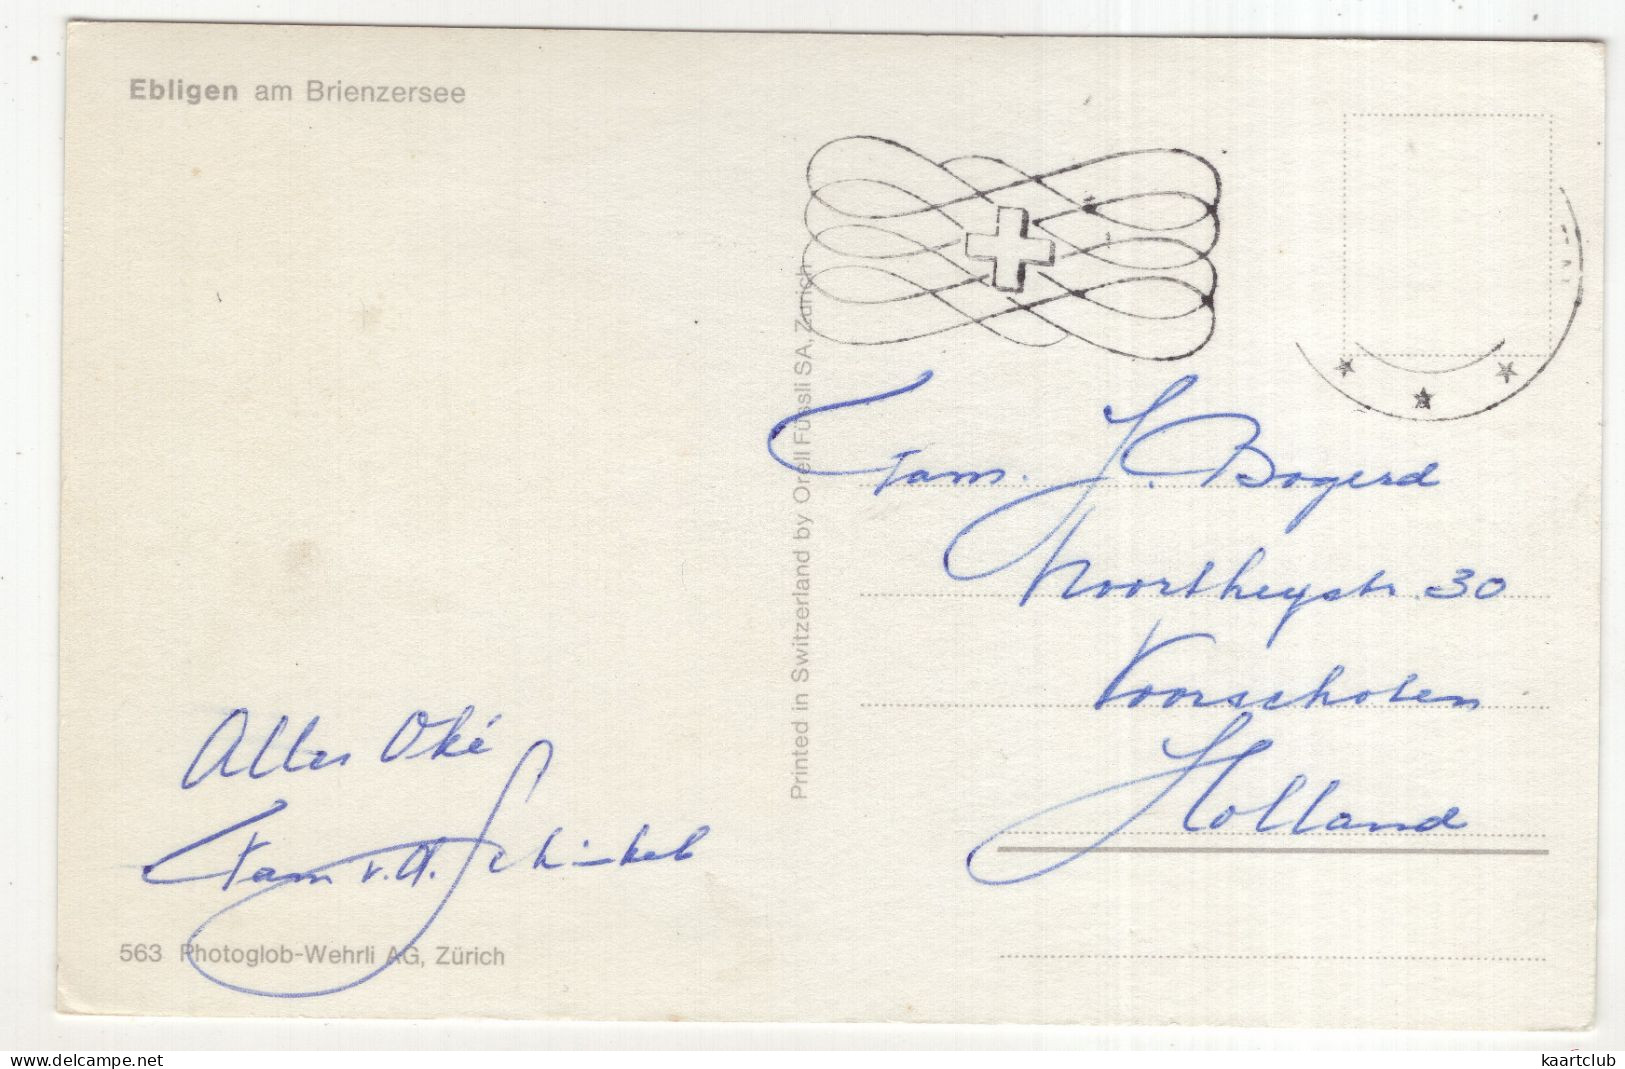 Ebligen am Brienzersee
Alles Oké
Fam v.d. Schinkel
563 Photoglob-Wehrli AG, Zürich
Printed in Switzerland by Orell Füssli SA, Zürich
Fam. J. Bogerd
Noortheystr. 30
Voorschoten
Holland
www.delcampe.net
kaartclub